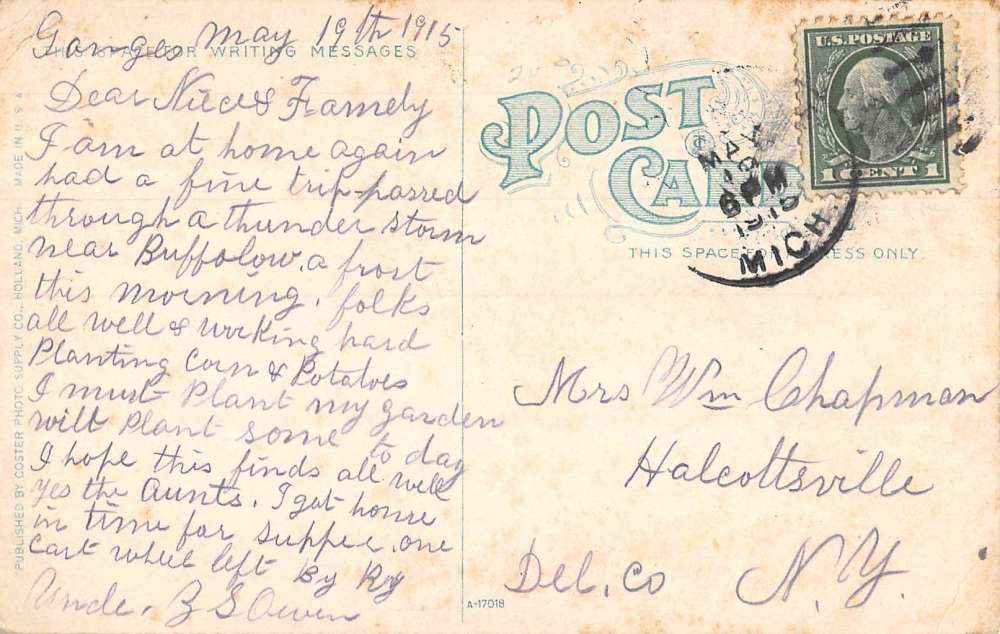 Ganges May 19th 1915
THIS SPACE FOR WRITING MESSAGES
Dear Niece & Famely
I am at home again
had a fine trip-passed
through a thunder storm
near Buffolow. a frost
this morning. folks
all well & working hard
Planting Corn & Potatoes
I must Plant my garden
will Plant some to day
I hope this finds all well
yes the Aunts. I got home
in time for supper. one
cart wheel left By Ry
Uncle. Owen
PUBLISHED BY COSTER PHOTO SUPPLY CO., HOLLAND, MICH. MADE IN U.S.A.
POST CARD
U.S. POSTAGE
1 CENT 1
MICH
THIS SPACE FOR ADDRESS ONLY.
Mrs Wm Chapman
Halcottsville
Del. Co N.Y.
A-17018